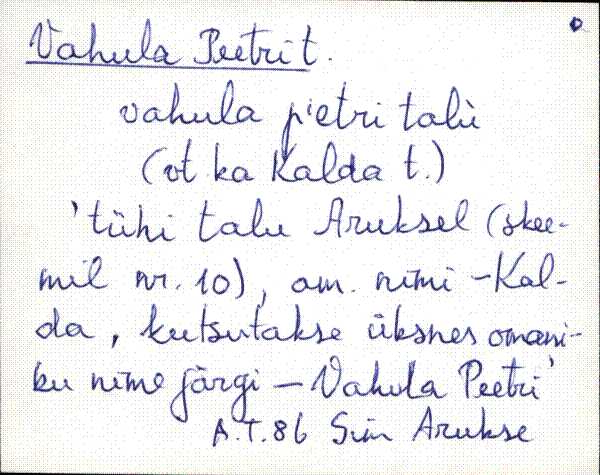 Vahula Peetri t.
vahula pietri talù
(vt ka Kalda t.)
'tühi talu Aruksel (skee-
mil nr. 10), am. nimi - Kal-
da, kutsutakse üksnes omani-
ku nime järgi - Vahula Peetri'
A.T.86 Sim Arukse